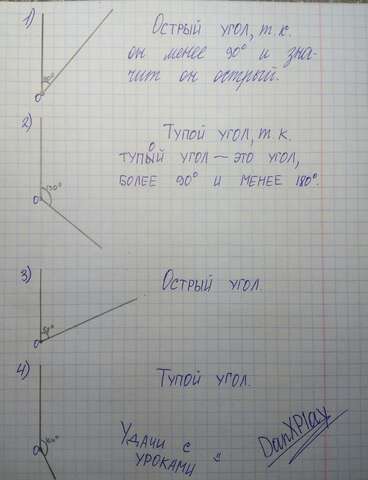 1) Острый угол, т.к.
он менее 90° и зна-
чит он острый.
O
2) Тупой угол, т.к.
тупой угол — это угол,
более 90° и менее 180°.
O
3) Острый угол.
O
4) Тупой угол.
O
Удачи с
уроками
DanXPlay